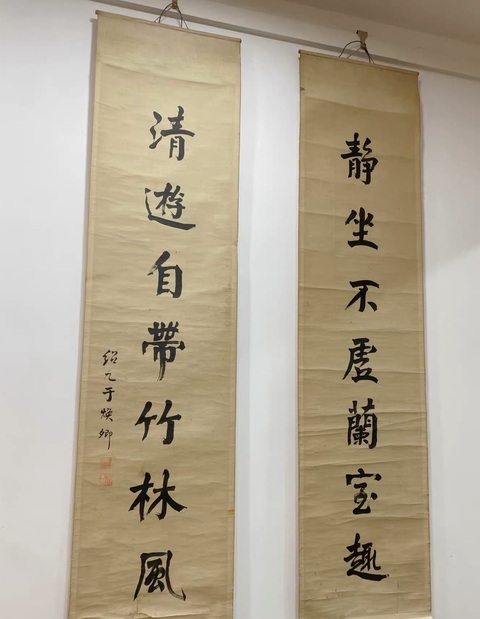 靜坐不虛蘭室趣
清遊自帶竹林風
于煥卿